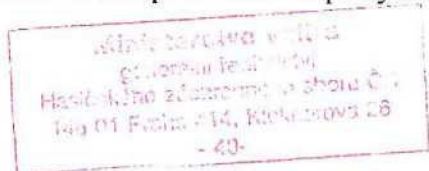 Ministerstvo vnitra
generální ředitelství
Hasičského záchranného sboru ČR
140 01 Praha 414, Kloknerova 26
- 40-